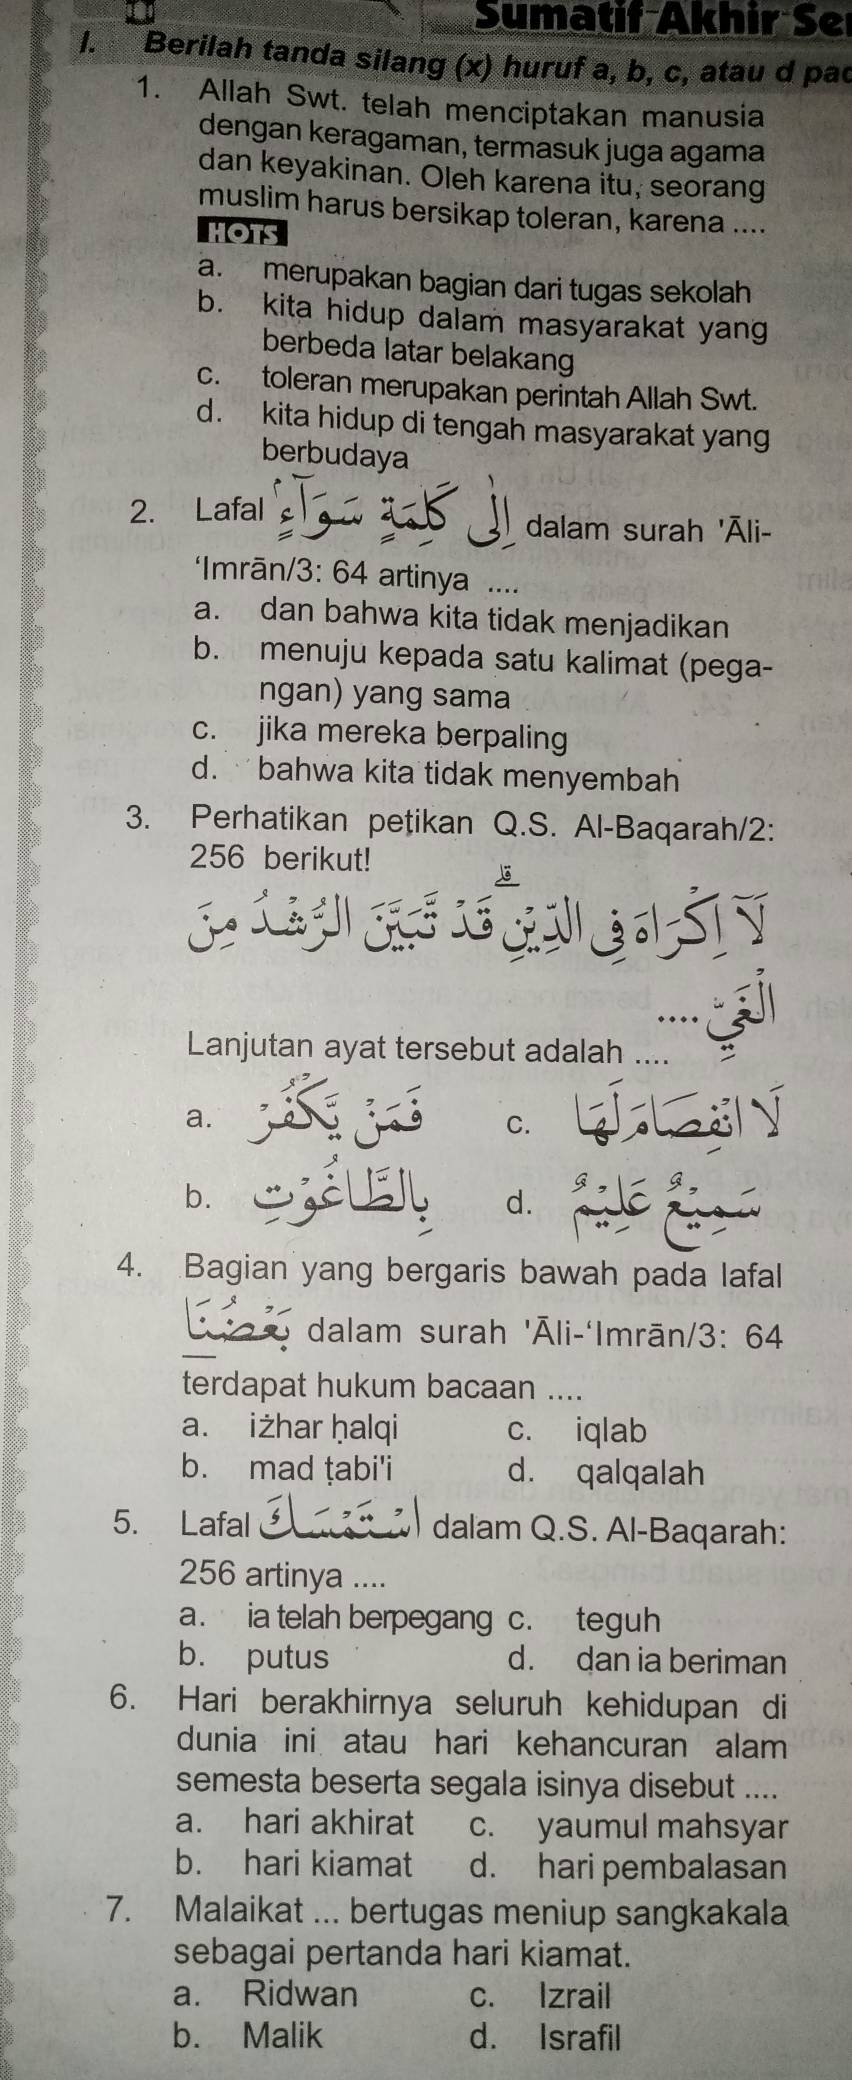 Sumatif Akhir Se
I. Berilah tanda silang (x) huruf a, b, c, atau d pad
1. Allah Swt. telah menciptakan manusia
dengan keragaman, termasuk juga agama
dan keyakinan. Oleh karena itu, seorang
muslim harus bersikap toleran, karena ....
HOTS
a. merupakan bagian dari tugas sekolah
b. kita hidup dalam masyarakat yang
berbeda latar belakang
c. toleran merupakan perintah Allah Swt.
d. kita hidup di tengah masyarakat yang
berbudaya
2. Lafal اِلٰى كَلِمَةٍ سَوَاۤءٍ dalam surah 'Āli-
‘Imrān/3: 64 artinya ....
a. dan bahwa kita tidak menjadikan
b. menuju kepada satu kalimat (pega-
ngan) yang sama
c. jika mereka berpaling
d. bahwa kita tidak menyembah
3. Perhatikan petikan Q.S. Al-Baqarah/2:
256 berikut!
لَآ اِكْرَاهَ فِى الدِّيْنِۗ قَدْ تَّبَيَّنَ الرُّشْدُ مِنَ
الْغَيِّ ....
Lanjutan ayat tersebut adalah ....
a. فَمَنْ يَّكْفُرْ c. لَا انْفِصَامَ لَهَا
b. بِالطَّاغُوْتِ d. سَمِيْعٌ عَلِيْمٌ
4. Bagian yang bergaris bawah pada lafal
بَعْضُنَا dalam surah 'Āli-‘Imrān/3: 64
terdapat hukum bacaan ....
a. iżhar ḥalqi c. iqlab
b. mad ṭabi'i d. qalqalah
5. Lafal اسْتَمْسَكَ dalam Q.S. Al-Baqarah:
256 artinya ....
a. ia telah berpegang c. teguh
b. putus d. dan ia beriman
6. Hari berakhirnya seluruh kehidupan di
dunia ini atau hari kehancuran alam
semesta beserta segala isinya disebut ....
a. hari akhirat c. yaumul mahsyar
b. hari kiamat d. hari pembalasan
7. Malaikat ... bertugas meniup sangkakala
sebagai pertanda hari kiamat.
a. Ridwan c. Izrail
b. Malik d. Israfil